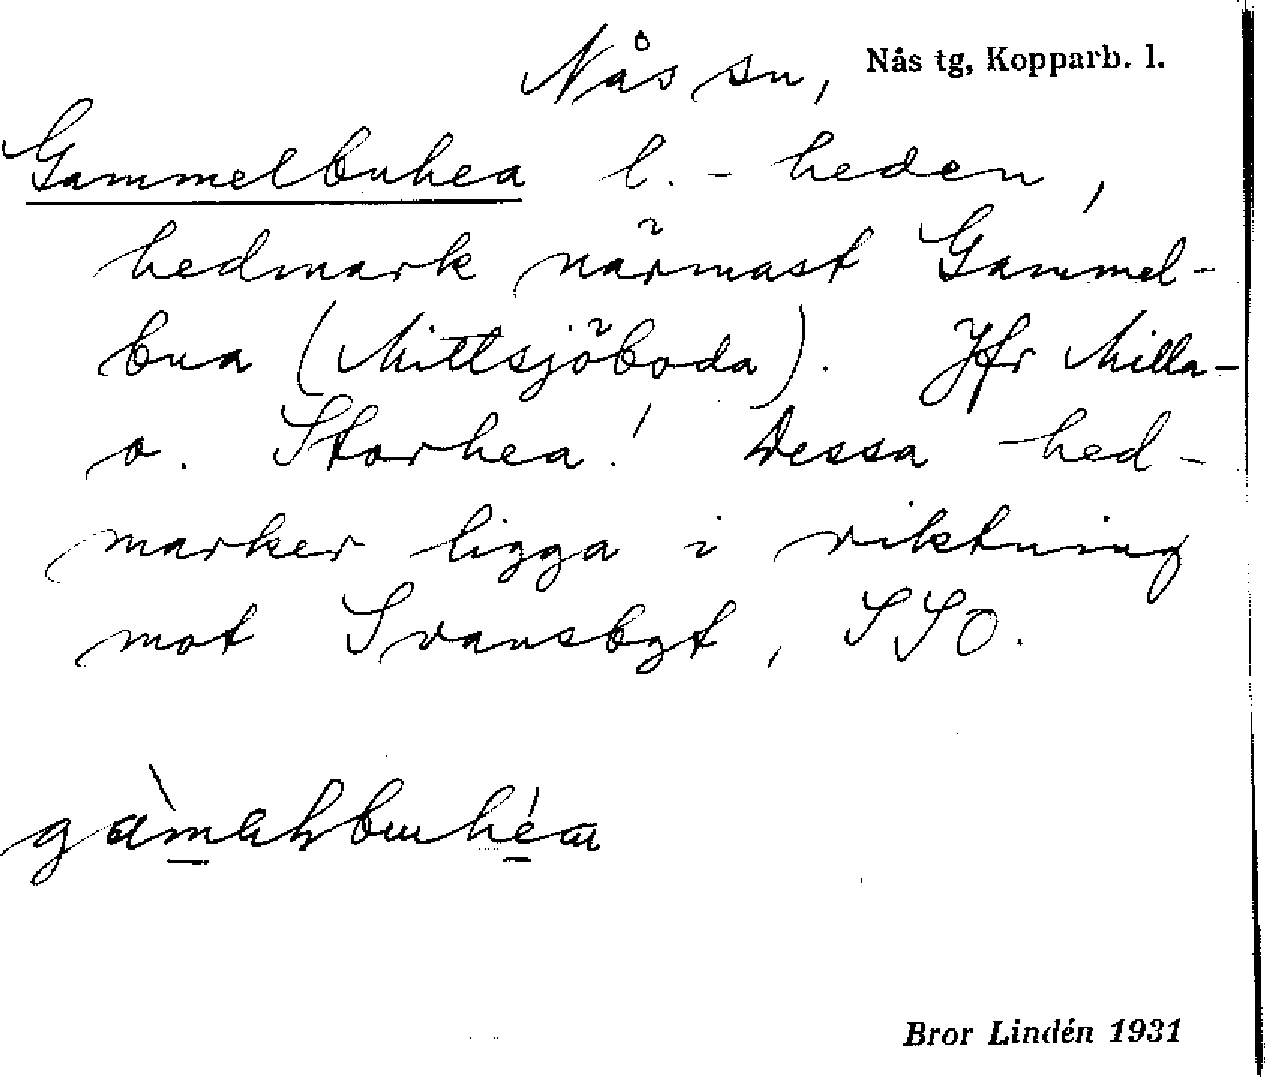 Nås sn, Nås tg, Kopparb. l.
Gammelbuhea l. -heden,
hedmark närmast Gammel-
bua (Mittsjöboda). Jfr Milla-
o. Storhea! Dessa hed-
marker ligga i riktning
mot Svansbyt, SSO.
Bror Lindén 1931